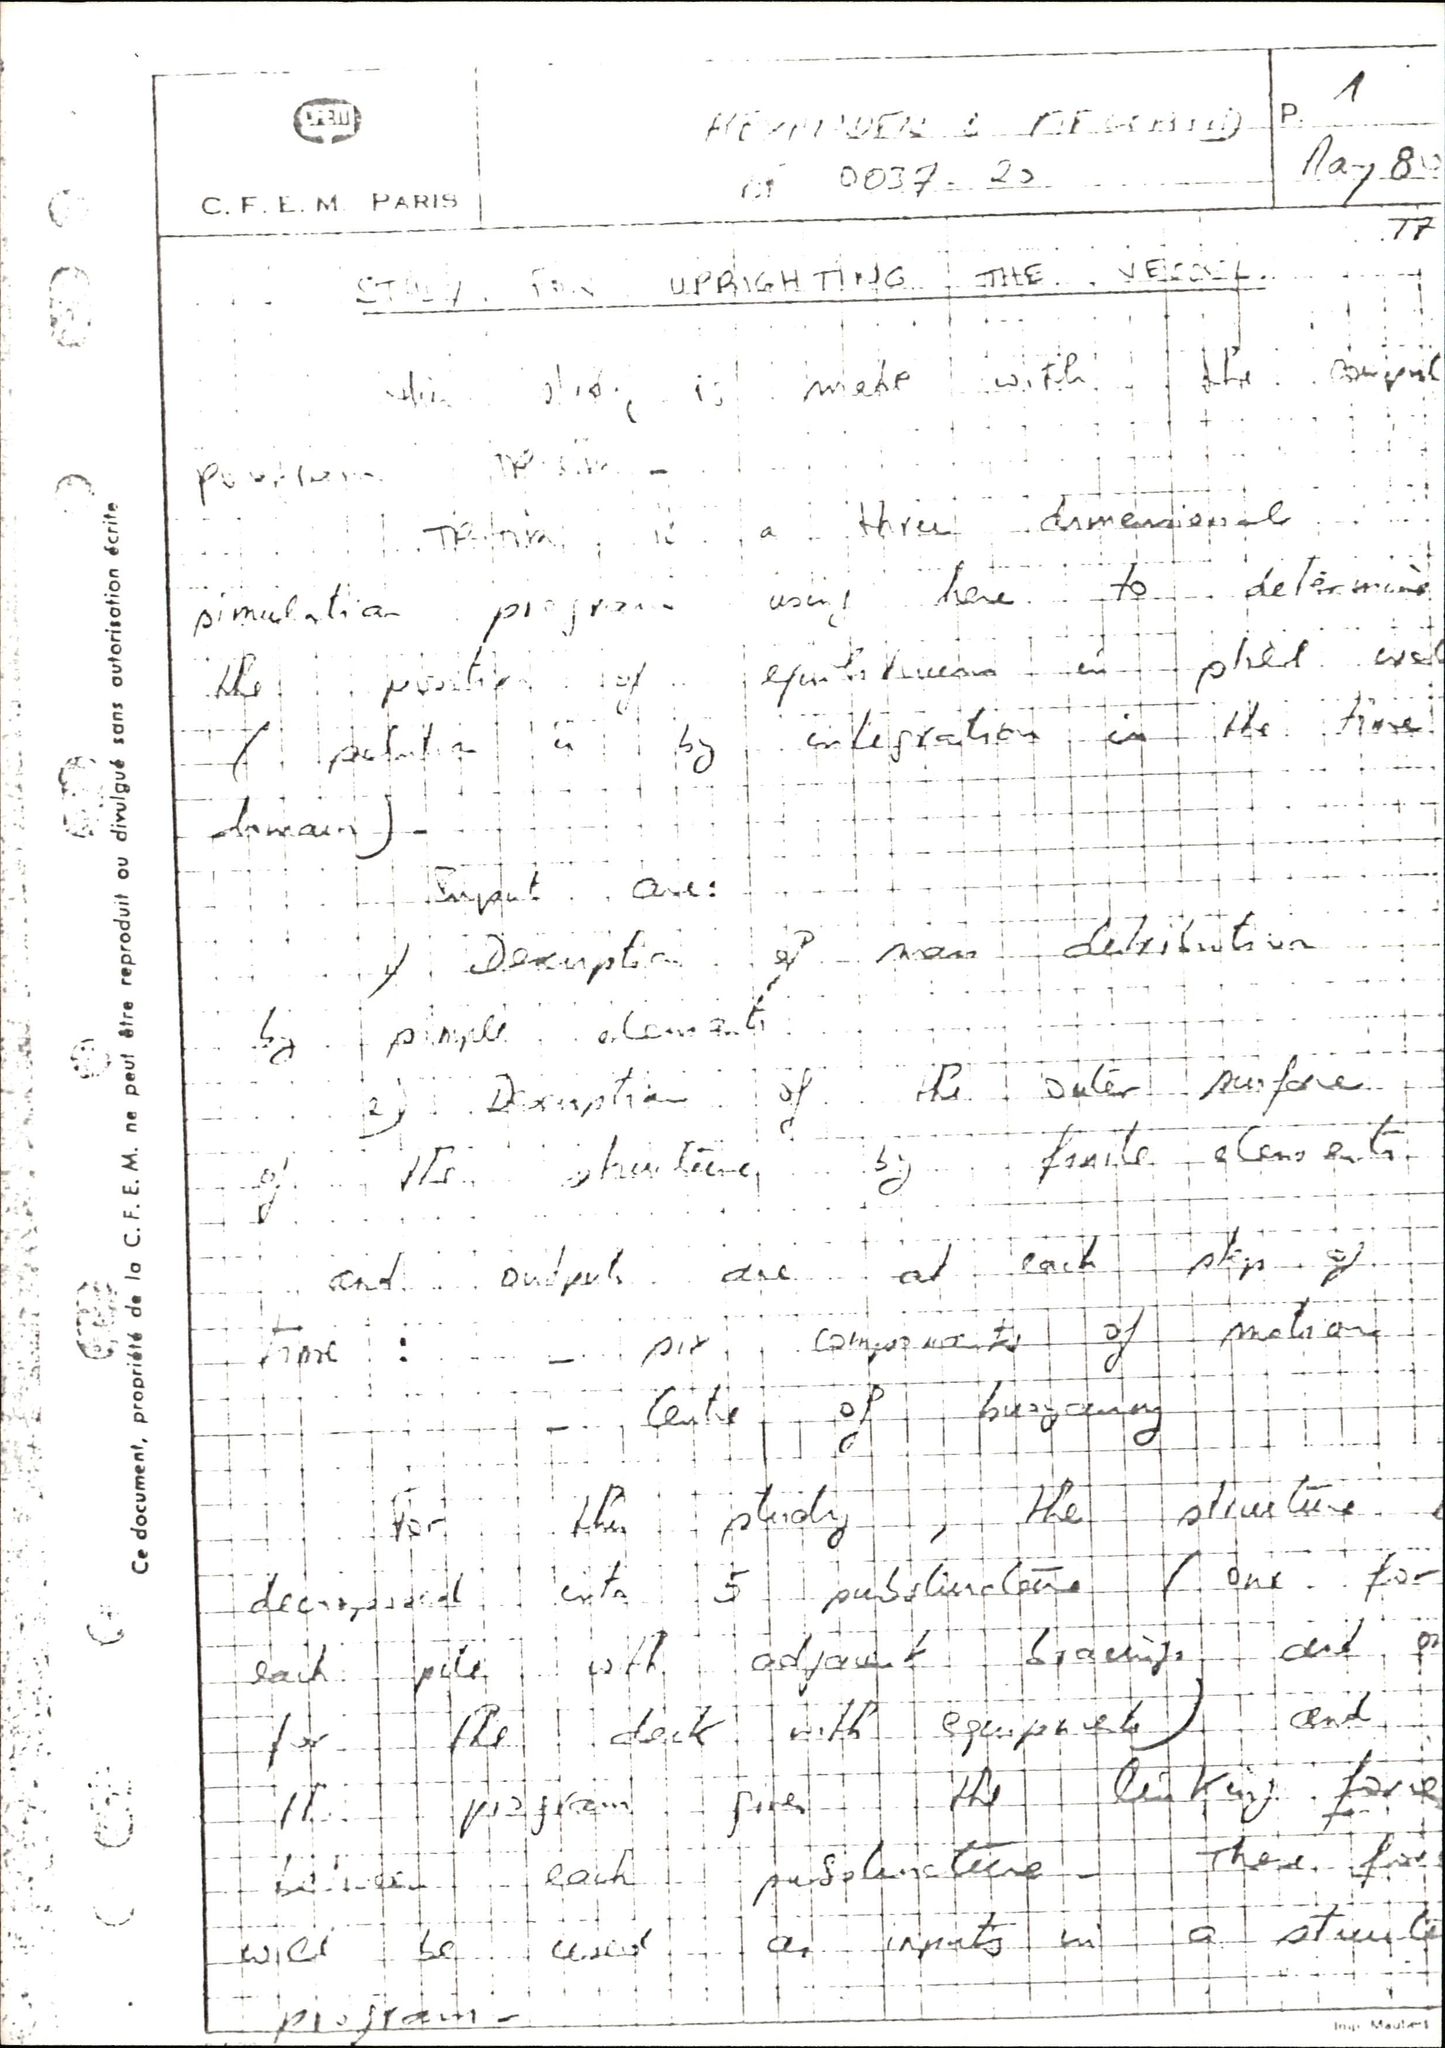 C. F. E. M. PARIS
0037-20
P. 1
May 80
STUDY FOR UPRIGHTING THE VESSEL.
This study is made with the
program
is a three dimensional
simulation program using here to determine
the position of equilibrium in
( solution is by integration in the time
domain) -
Input are:
1) Description of mass distribution
by simple elements
2) Description of the outer surface
of the structure, by finite elements.
and outputs are at each step of
time : - six components of motion
- Centre of buoyancy
For this study, the structure
decomposed into 5 substructure ( one for
each pile with adjacent bracings and
for the deck with equipments) and
the program gives the linking
between each substructure - These
will be used as inputs in a
program -
Ce document, propriété de la C. F. E. M. ne peut être reproduit ou divulgué sans autorisation écrite
Imp. Maubert